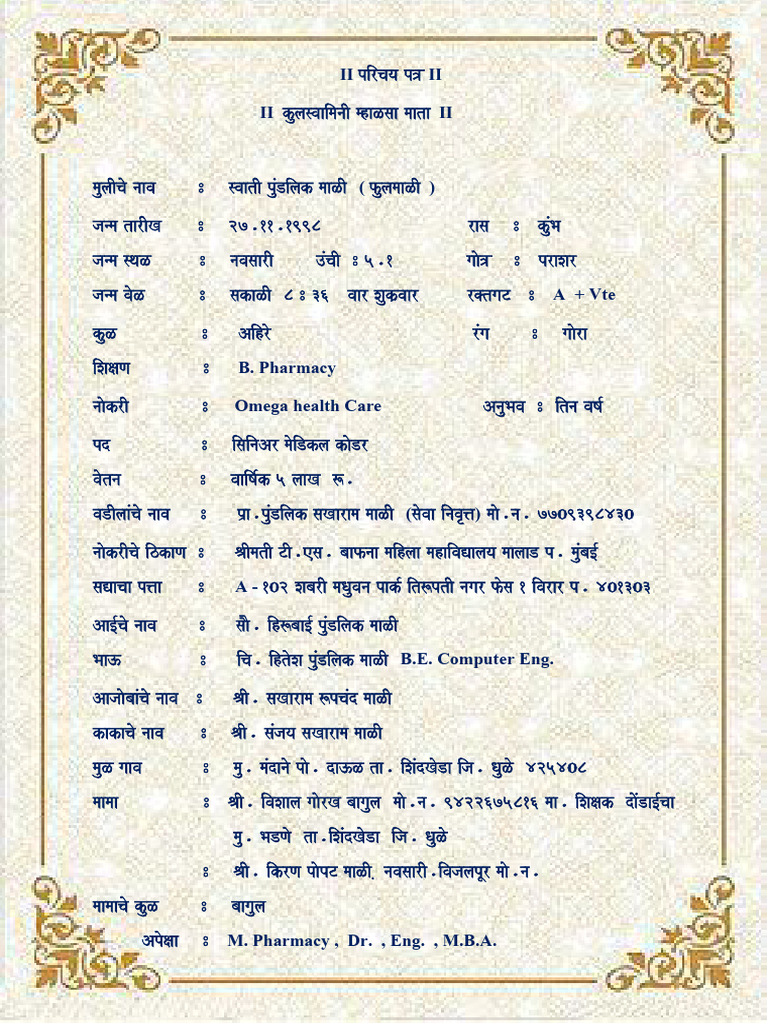 II परिचय पत्र II
II कुलस्वामिनी म्हाळसा माता II
मुलीचे नाव : स्वाती पुंडलिक माळी ( फुलमाळी )
जन्म तारीख : २७.११.१९९८ रास : कुंभ
जन्म स्थळ : नवसारी उंची : ५.१ गोत्र : पराशर
जन्म वेळ : सकाळी ८ : ३६ वार शुकवार रक्तगट : A + Vte
कुळ : अहिरे रंग : गोरा
शिक्षण : B. Pharmacy
नोकरी : Omega health Care अनुभव : तिन वर्ष
पद : सिनिअर मेडिकल कोडर
वेतन : वार्षिक ५ लाख रू.
वडीलांचे नाव : प्रा.पुंडलिक सखाराम माळी (सेवा निवृत्त) मो.न. ७७०९३९८४३०
नोकरीचे ठिकाण : श्रीमती टी.एस. बाफना महिला महाविद्यालय मालाड प. मुंबई
सद्याचा पत्ता : A - १०२ शबरी मधुवन पार्क तिरूपती नगर फेस १ विरार प. ४०१३०३
आईचे नाव : सौ. हिरूबाई पुंडलिक माळी
भाऊ : चि. हितेश पुंडलिक माळी B.E. Computer Eng.
आजोबांचे नाव : श्री. सखाराम रूपचंद माळी
काकाचे नाव : श्री. संजय सखाराम माळी
मुळ गाव : मु. मंदाने पो. दाऊळ ता. शिंदखेडा जि. धुळे ४२५४०८
मामा : श्री. विशाल गोरख बागुल मो.न. ९४२२६७५८१६ मा. शिक्षक दोंडाईचा
मु. भडणे ता.शिंदखेडा जि. धुळे
: श्री. किरण पोपट माळी. नवसारी.विजलपूर मो.न.
मामाचे कुळ : बागुल
अपेक्षा : M. Pharmacy , Dr. , Eng. , M.B.A.